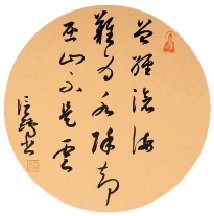 曾经沧海
难为水除却
巫山不是云